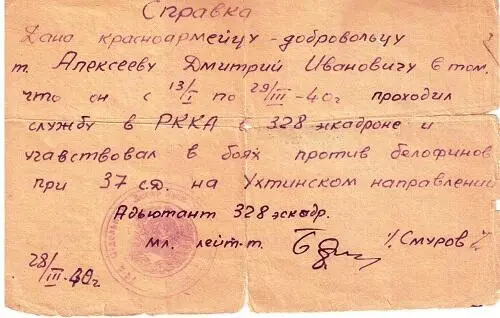 Справка
Дана красноармейцу-добровольцу
т. Алексееву Дмитрий Ивановичу в том,
что он с 13/I по 29/III-40г проходил
службу в РККА с 328 эскадроне и
учавствовал в боях против белофинов
при 37 с.д. на Ухтинском направлений
Адьютант 328 эскадр.
мл. лейт-т. /Смуров/
28/III-40г